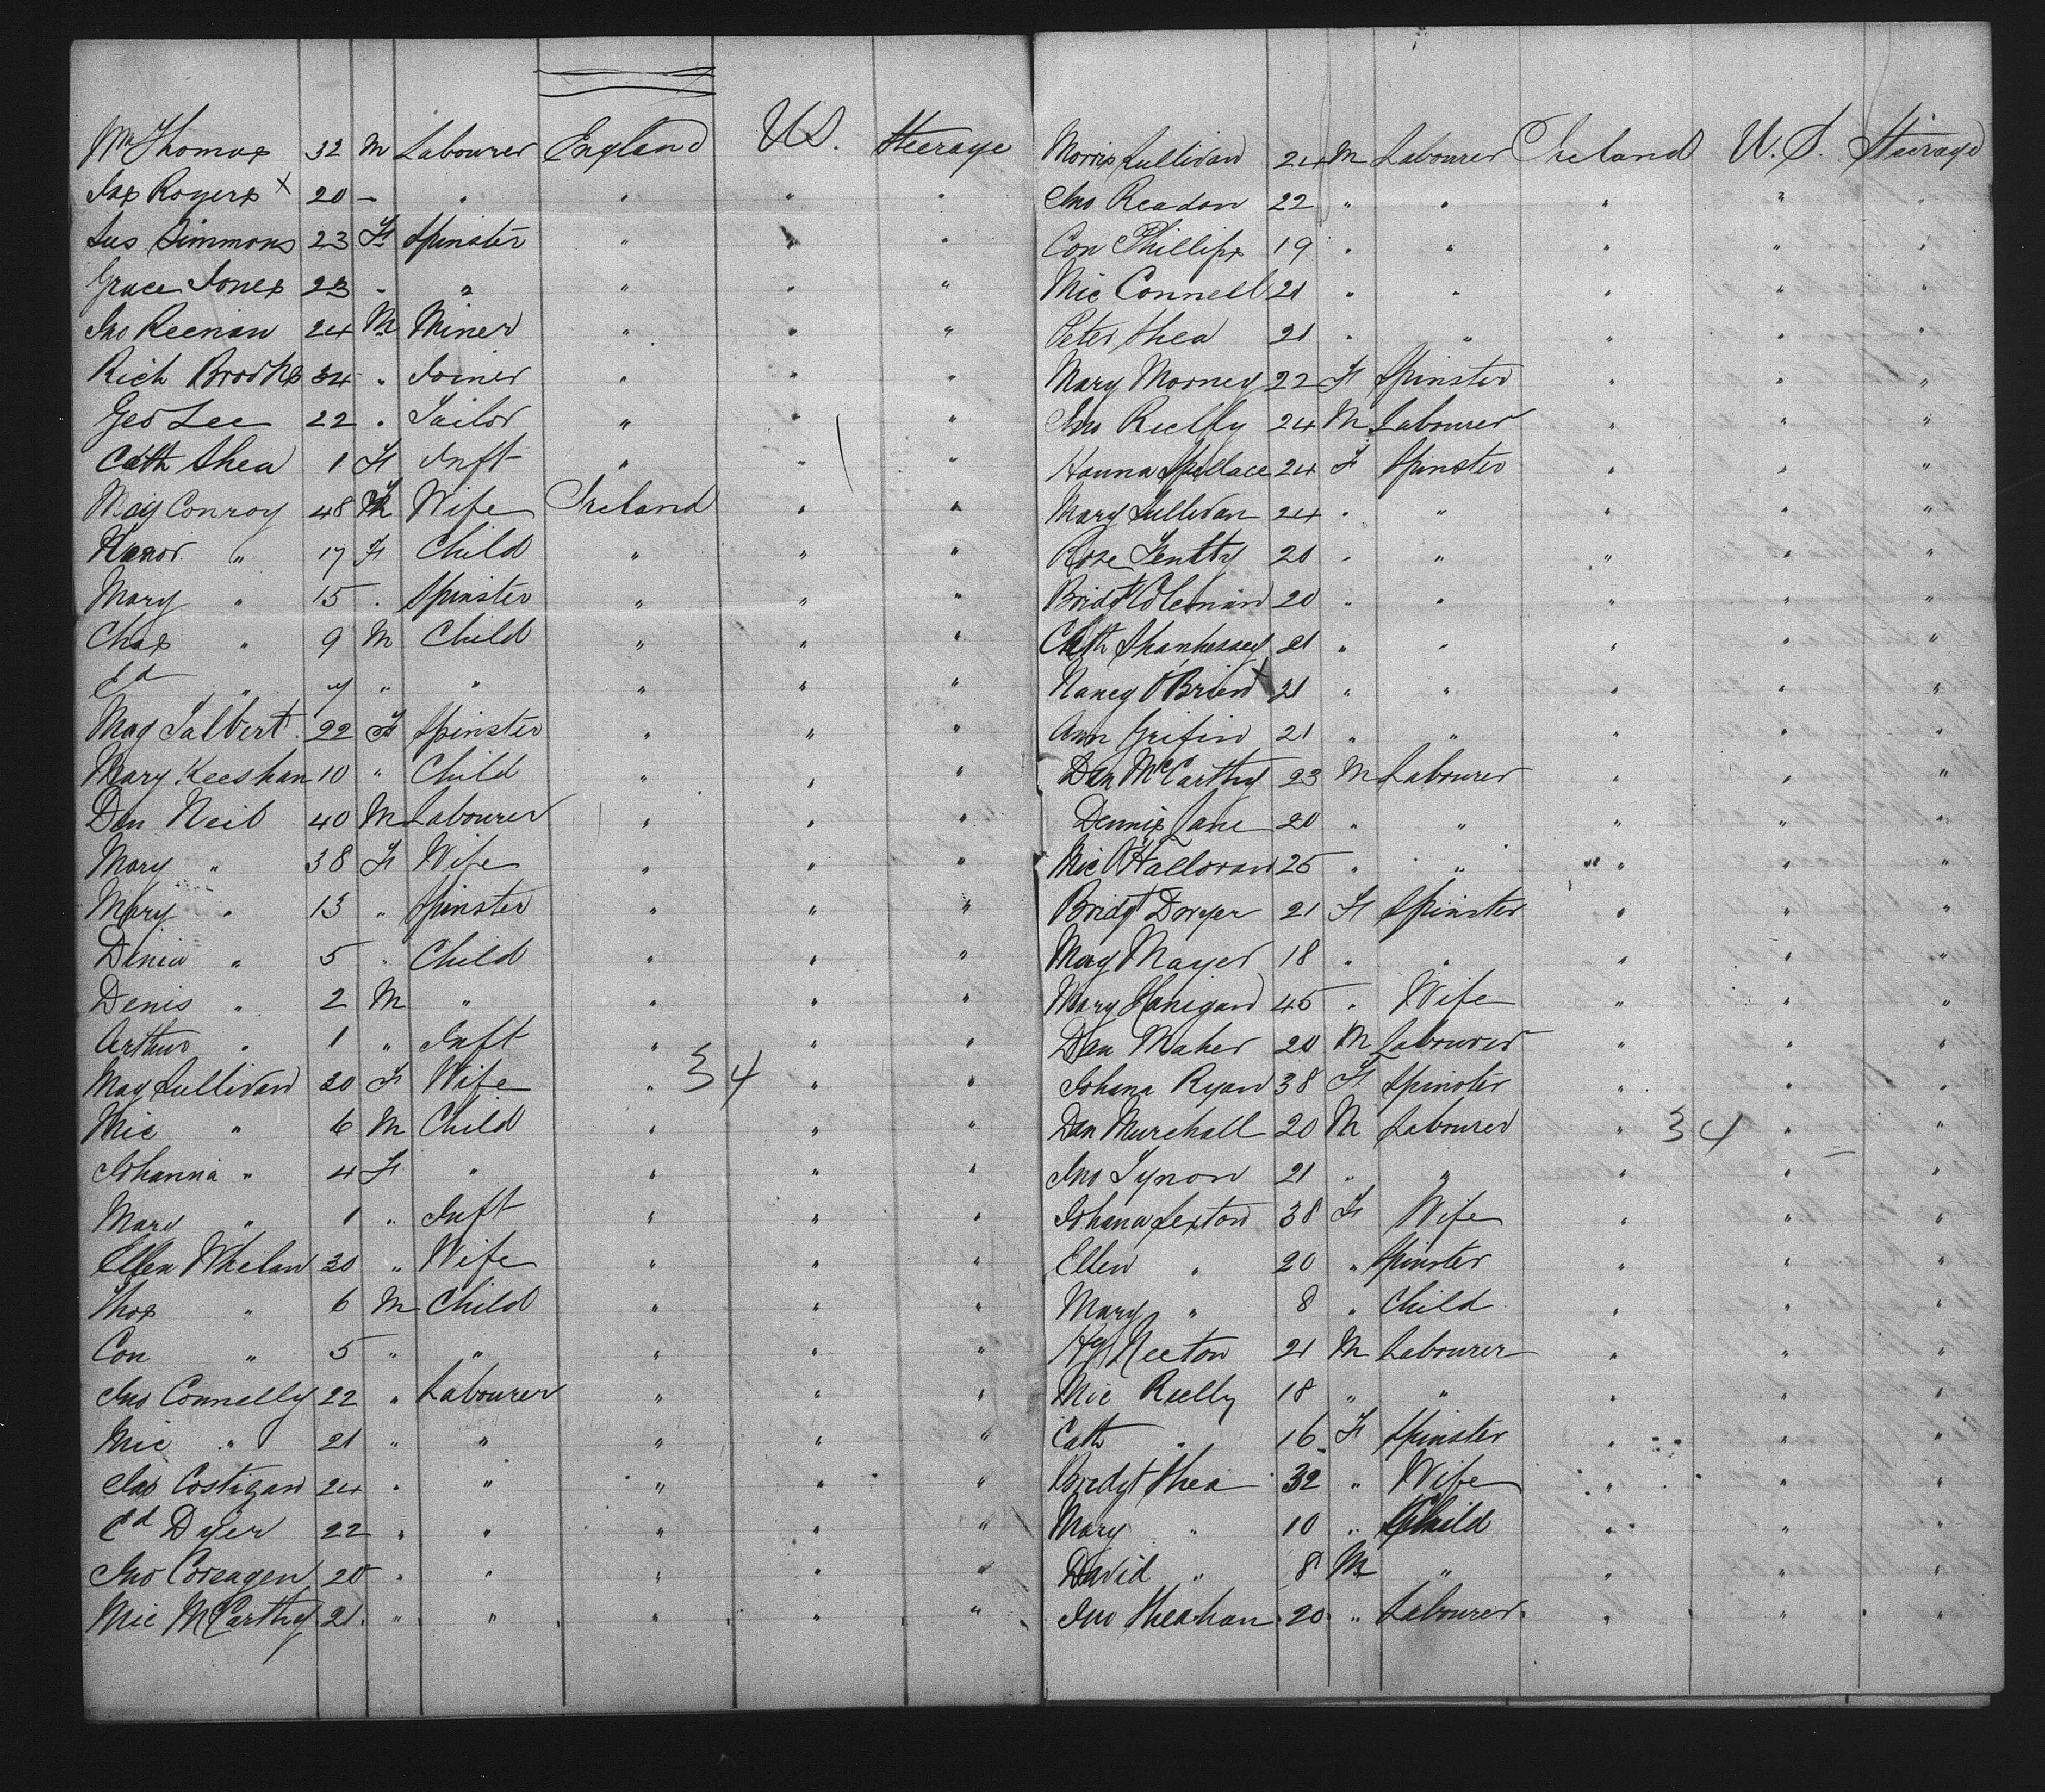 Wm Thomas 32 M Labourer England U.S. Steerage
Jas Rogers x 20 - " " " "
Sus Simmons 23 F Spinster " " "
Grace Jones 23 " " " " "
Jno Keenan 24 M Miner " " "
Rich Brookes 34 " Joiner " " "
Geo Lee 22 " Tailor " " "
Cath Shea 1 F Inft " " "
Mag Conroy 48 F Wife Ireland " "
" 17 F Child " " "
Mary " 15 " Spinster " " "
Chas " 9 M Child " " "
Ed " 7 " " " " "
Mag Talbert 22 F Spinster " " "
Mary Keeshan 10 " Child " " "
Dan Neil 40 M Labourer " " "
Mary " 38 F Wife " " "
Mary " 13 " Spinster " " "
" 5 " Child " " "
Denis " 2 M " " " "
Arthur " 1 " Inft " " "
Mag Sullivan 30 F Wife " 34 " "
Mic " 6 M Child " " "
Johanna " 4 F " " " "
Mary " 1 " Inft " " "
Ellen Whelan 30 " Wife " " "
Thos " 6 M Child " " "
Con " 5 " " " " "
Jno Connelly 22 " Labourer " " "
Mic " 21 " " " " "
Jas Costigan 24 " " " " "
Ed Dyer 22 " " " " "
Jno Coreagen 20 " " " " "
Mic McCarthy 21 " " " " "
Morris Sullivan 24 M Labourer Ireland U.S. Steerage
Jno Readon 22 " " " " "
Con Phillips 19 " " " " "
Mic Connell 21 " " " " "
Peter Shea 21 " " " " "
Mary Morney 22 F Spinster " " "
Jno Rielly 24 M Labourer " " "
Hanna Spillace 24 F Spinster " " "
Mary Sullivan 24 " " " " "
Rose 20 " " " " "
Bridgt Coleman 20 " " " " "
Cath Shanhessey 21 " " " " "
Nancy O'Brien x 21 " " " " "
Ann Grifin 21 " " " " "
Dan McCarthy 23 M Labourer " " "
Dennis Lane 20 " " " " "
Mic O'Halloran 25 " " " " "
Bridgt Dwyer 21 F Spinster " " "
Mag Mayer 18 " " " " "
Mary Hanigan 45 " Wife " " "
Dan Maher 20 M Labourer " " "
Johana Ryan 38 F Spinster " " "
Dan Murchall 20 M Labourer " 34 " "
Jno Tynon 21 " " " " "
Johana Sexton 38 F Wife " " "
Ellen " 20 " Spinster " " "
Mary " 8 " Child " " "
Hy Neeton 21 M Labourer " " "
Mic Rielly 18 " " " " "
Cath " 16 F Spinster " " "
Bridgt Shea 32 " Wife " " "
Mary " 10 " Child " " "
David " 8 M " " " "
Jno Sheahan 20 " Labourer " " "